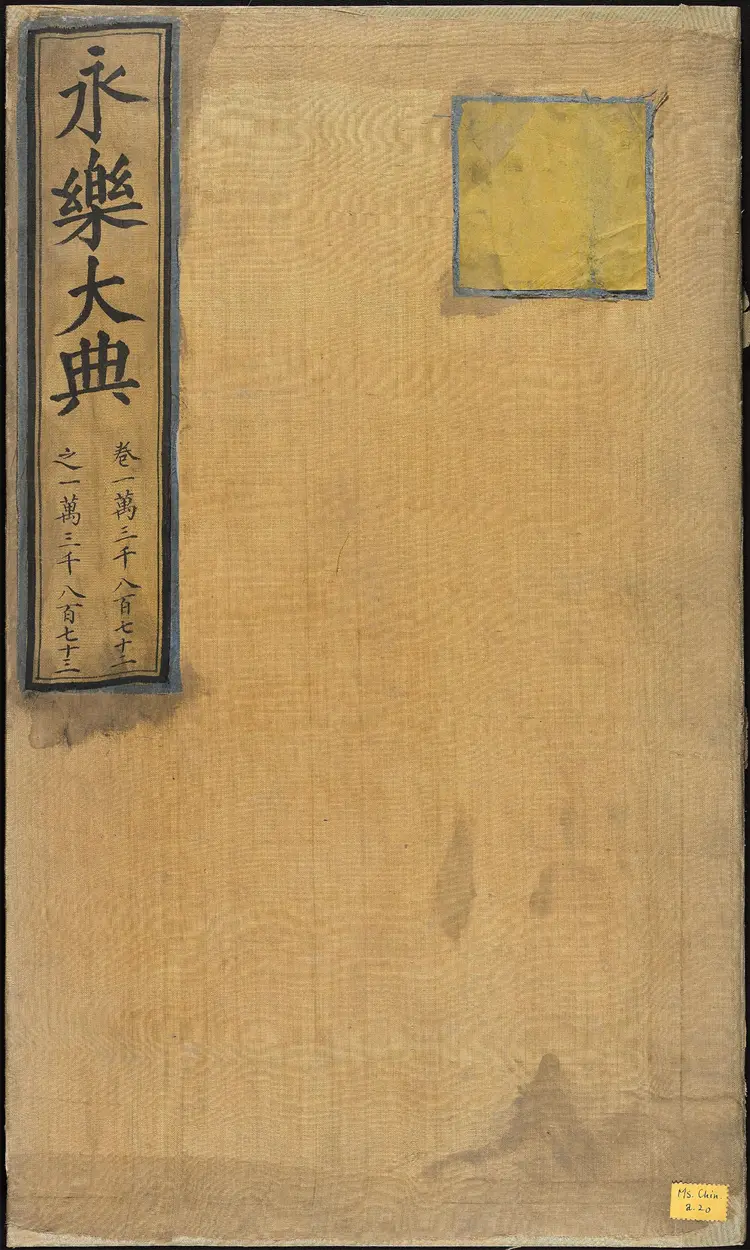 永樂大典
卷一萬三千八百七十二
之一萬三千八百七十三
Ms. Chin.
a. 20